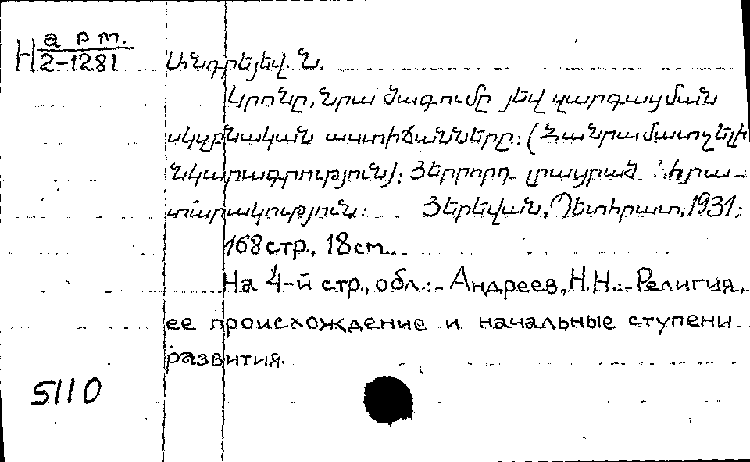 Н арт.
2-1281
Անդրեյեվ. Ն.
Կրոնը, նրա ծագումը յեվ զարգացման
սկզբնական աստիճանները: (Հանրամատչելի
նկարագրություն): Յերրորդ լրացրած հրա-
տարակություն: Յերեվան, Պետհրատ, 1931;
168 стр., 18 ст.
На 4-й стр., обл.: Андреев, Н.Н. Религия,
ее происхождение и начальные ступени
развития.
5110